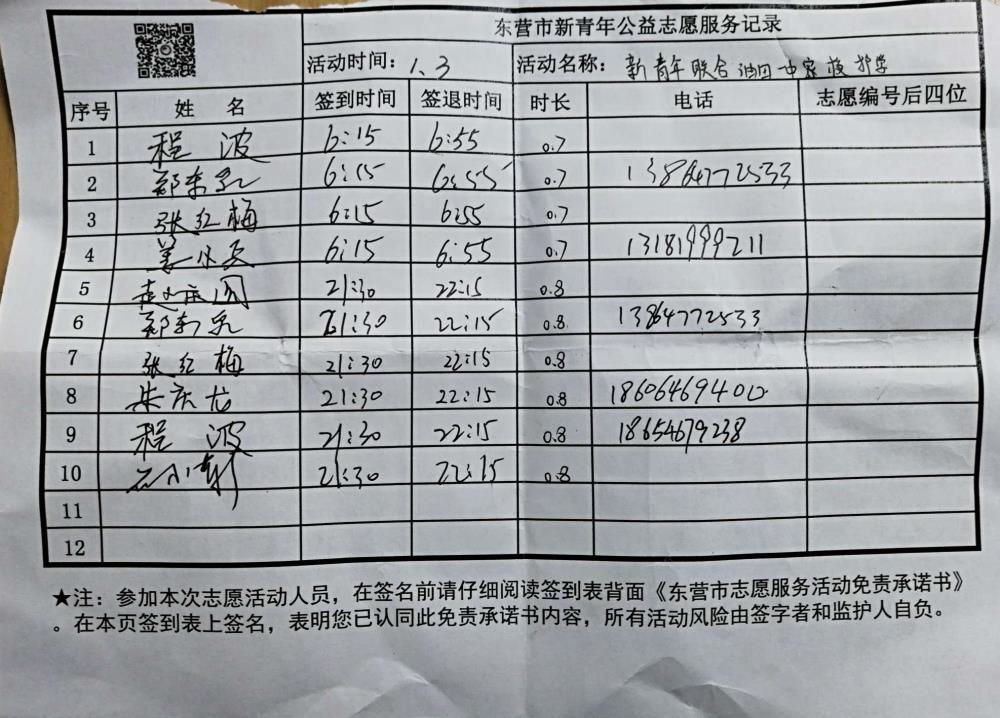 东营市新青年公益志愿服务记录
活动时间：1、3 活动名称： 新青年联合油田中家校护学
序号 姓 名 签到时间 签退时间 时长 电话 志愿编号后四位
1 程波 6:15 6:55 0.7
2 6:15 6:55 0.7 13864772533
3 张红梅 6:15 6:55 0.7
4 姜小兵 6:15 6:55 0.7 13181999211
5 21:30 22:15 0.8
6 21:30 22:15 0.8 13864772533
7 张红梅 21:30 22:15 0.8
8 朱庆龙 21:30 22:15 0.8 18606469400
9 程波 21:30 22:15 0.8 18654679238
10 21:30 22:15 0.8
11
12
★注：参加本次志愿活动人员，在签名前请仔细阅读签到表背面《东营市志愿服务活动免责承诺书》
。在本页签到表上签名，表明您已认同此免责承诺书内容，所有活动风险由签字者和监护人自负。